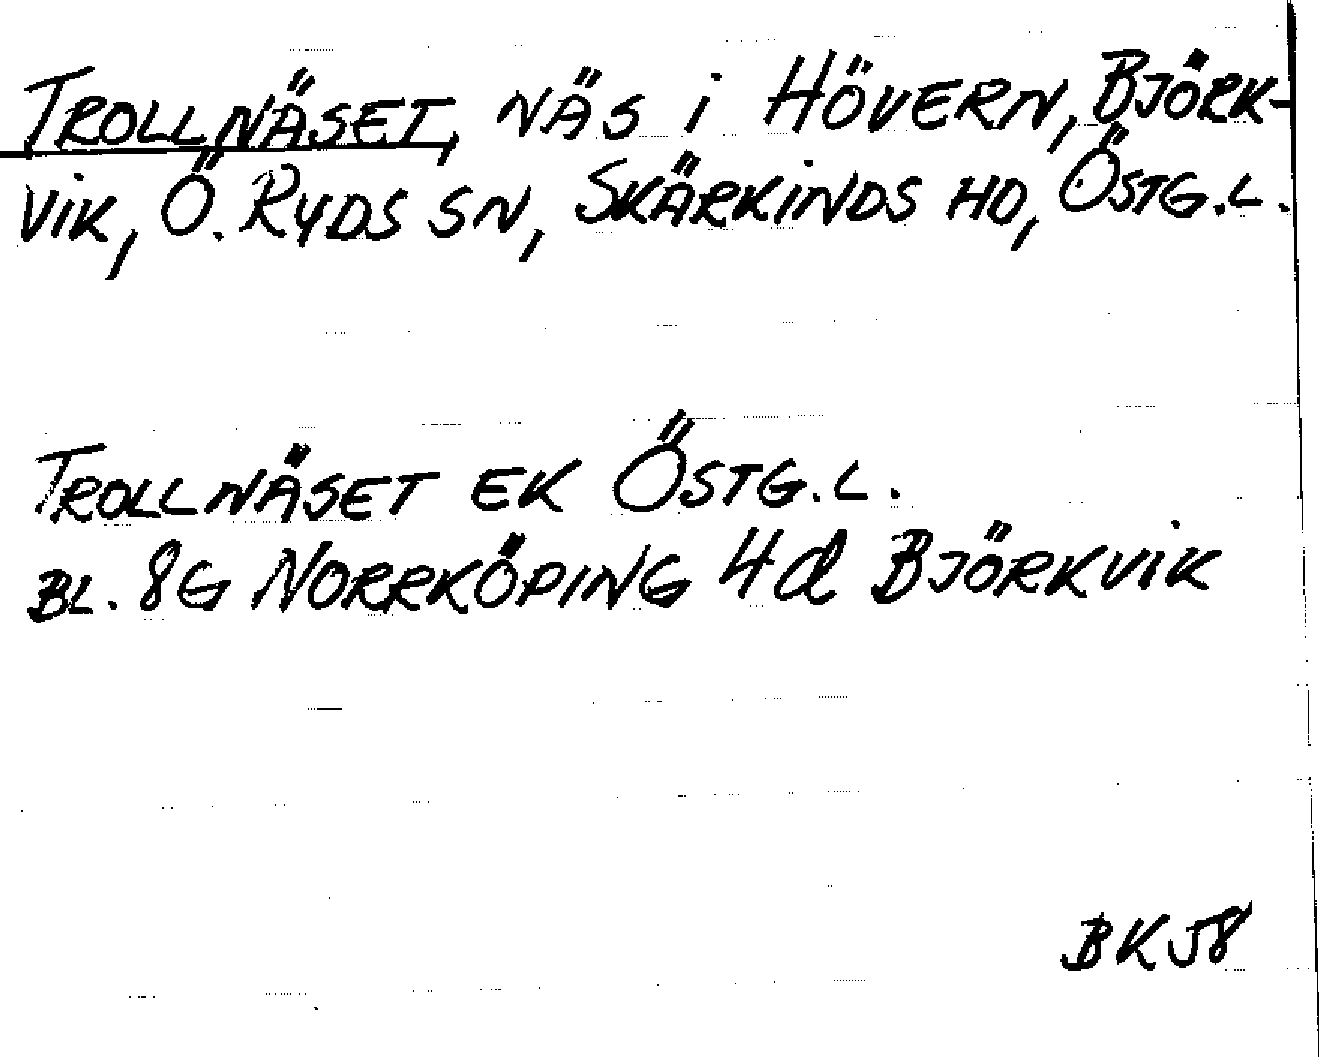 TROLLNÄSET, NÄS i HÖVERN, BJÖRK-
VIK, Ö. RYDS SN, SKÄRKINDS HD, ÖSTG.L.
TROLLNÄSET EK ÖSTG.L.
BL. 8G NORRKÖPING 4d BJÖRKVIK